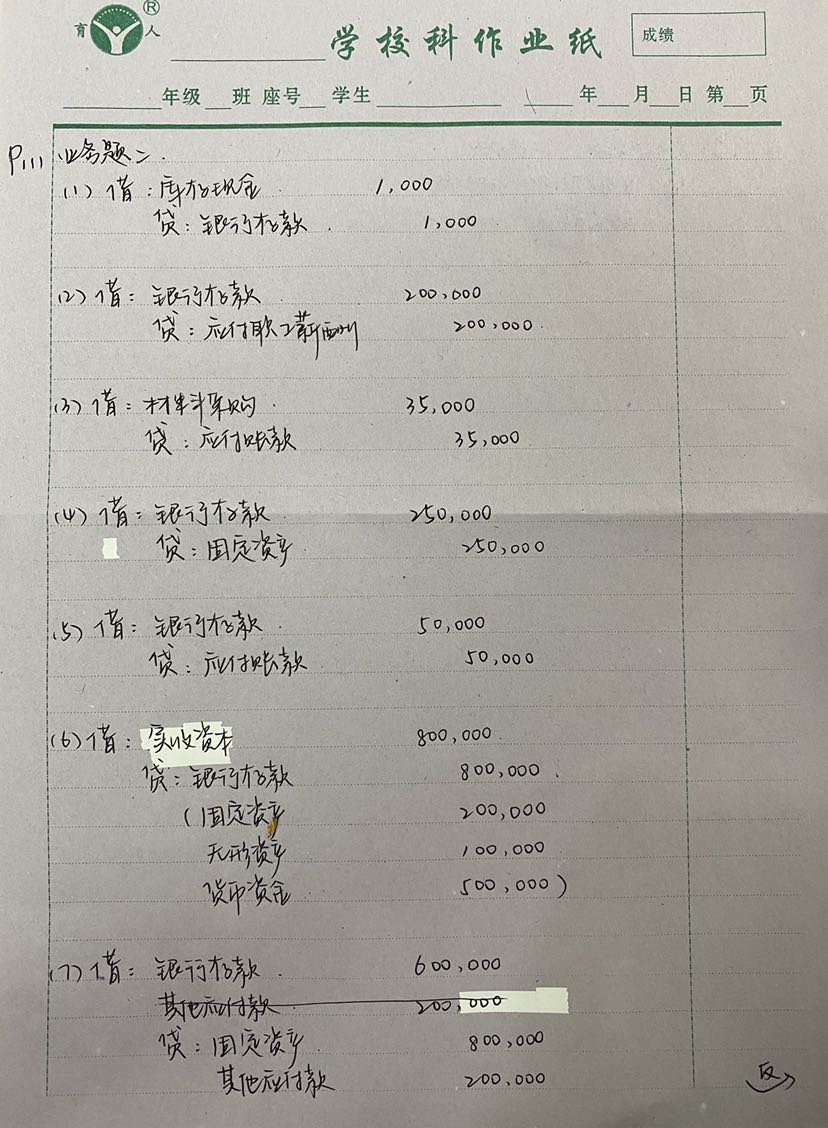 育 人 ®
学校科作业纸 成绩
年级 班 座号 学生 年 月 日 第 页
P111 业务题二.
(1) 借: 库存现金 1,000
贷: 银行存款 1,000
(2) 借: 银行存款 200,000
贷: 应付职工薪酬 200,000
(3) 借: 材料采购 35,000
贷: 应付账款 35,000
(4) 借: 银行存款 250,000
贷: 固定资产 250,000
(5) 借: 银行存款 50,000
贷: 应付账款 50,000
(6) 借: 实收资本 800,000
贷: 银行存款 800,000
(固定资产 200,000
无形资产 100,000
货币资金 500,000)
(7) 借: 银行存款 600,000
其他应付款 200,000
贷: 固定资产 800,000
其他应付款 200,000
反